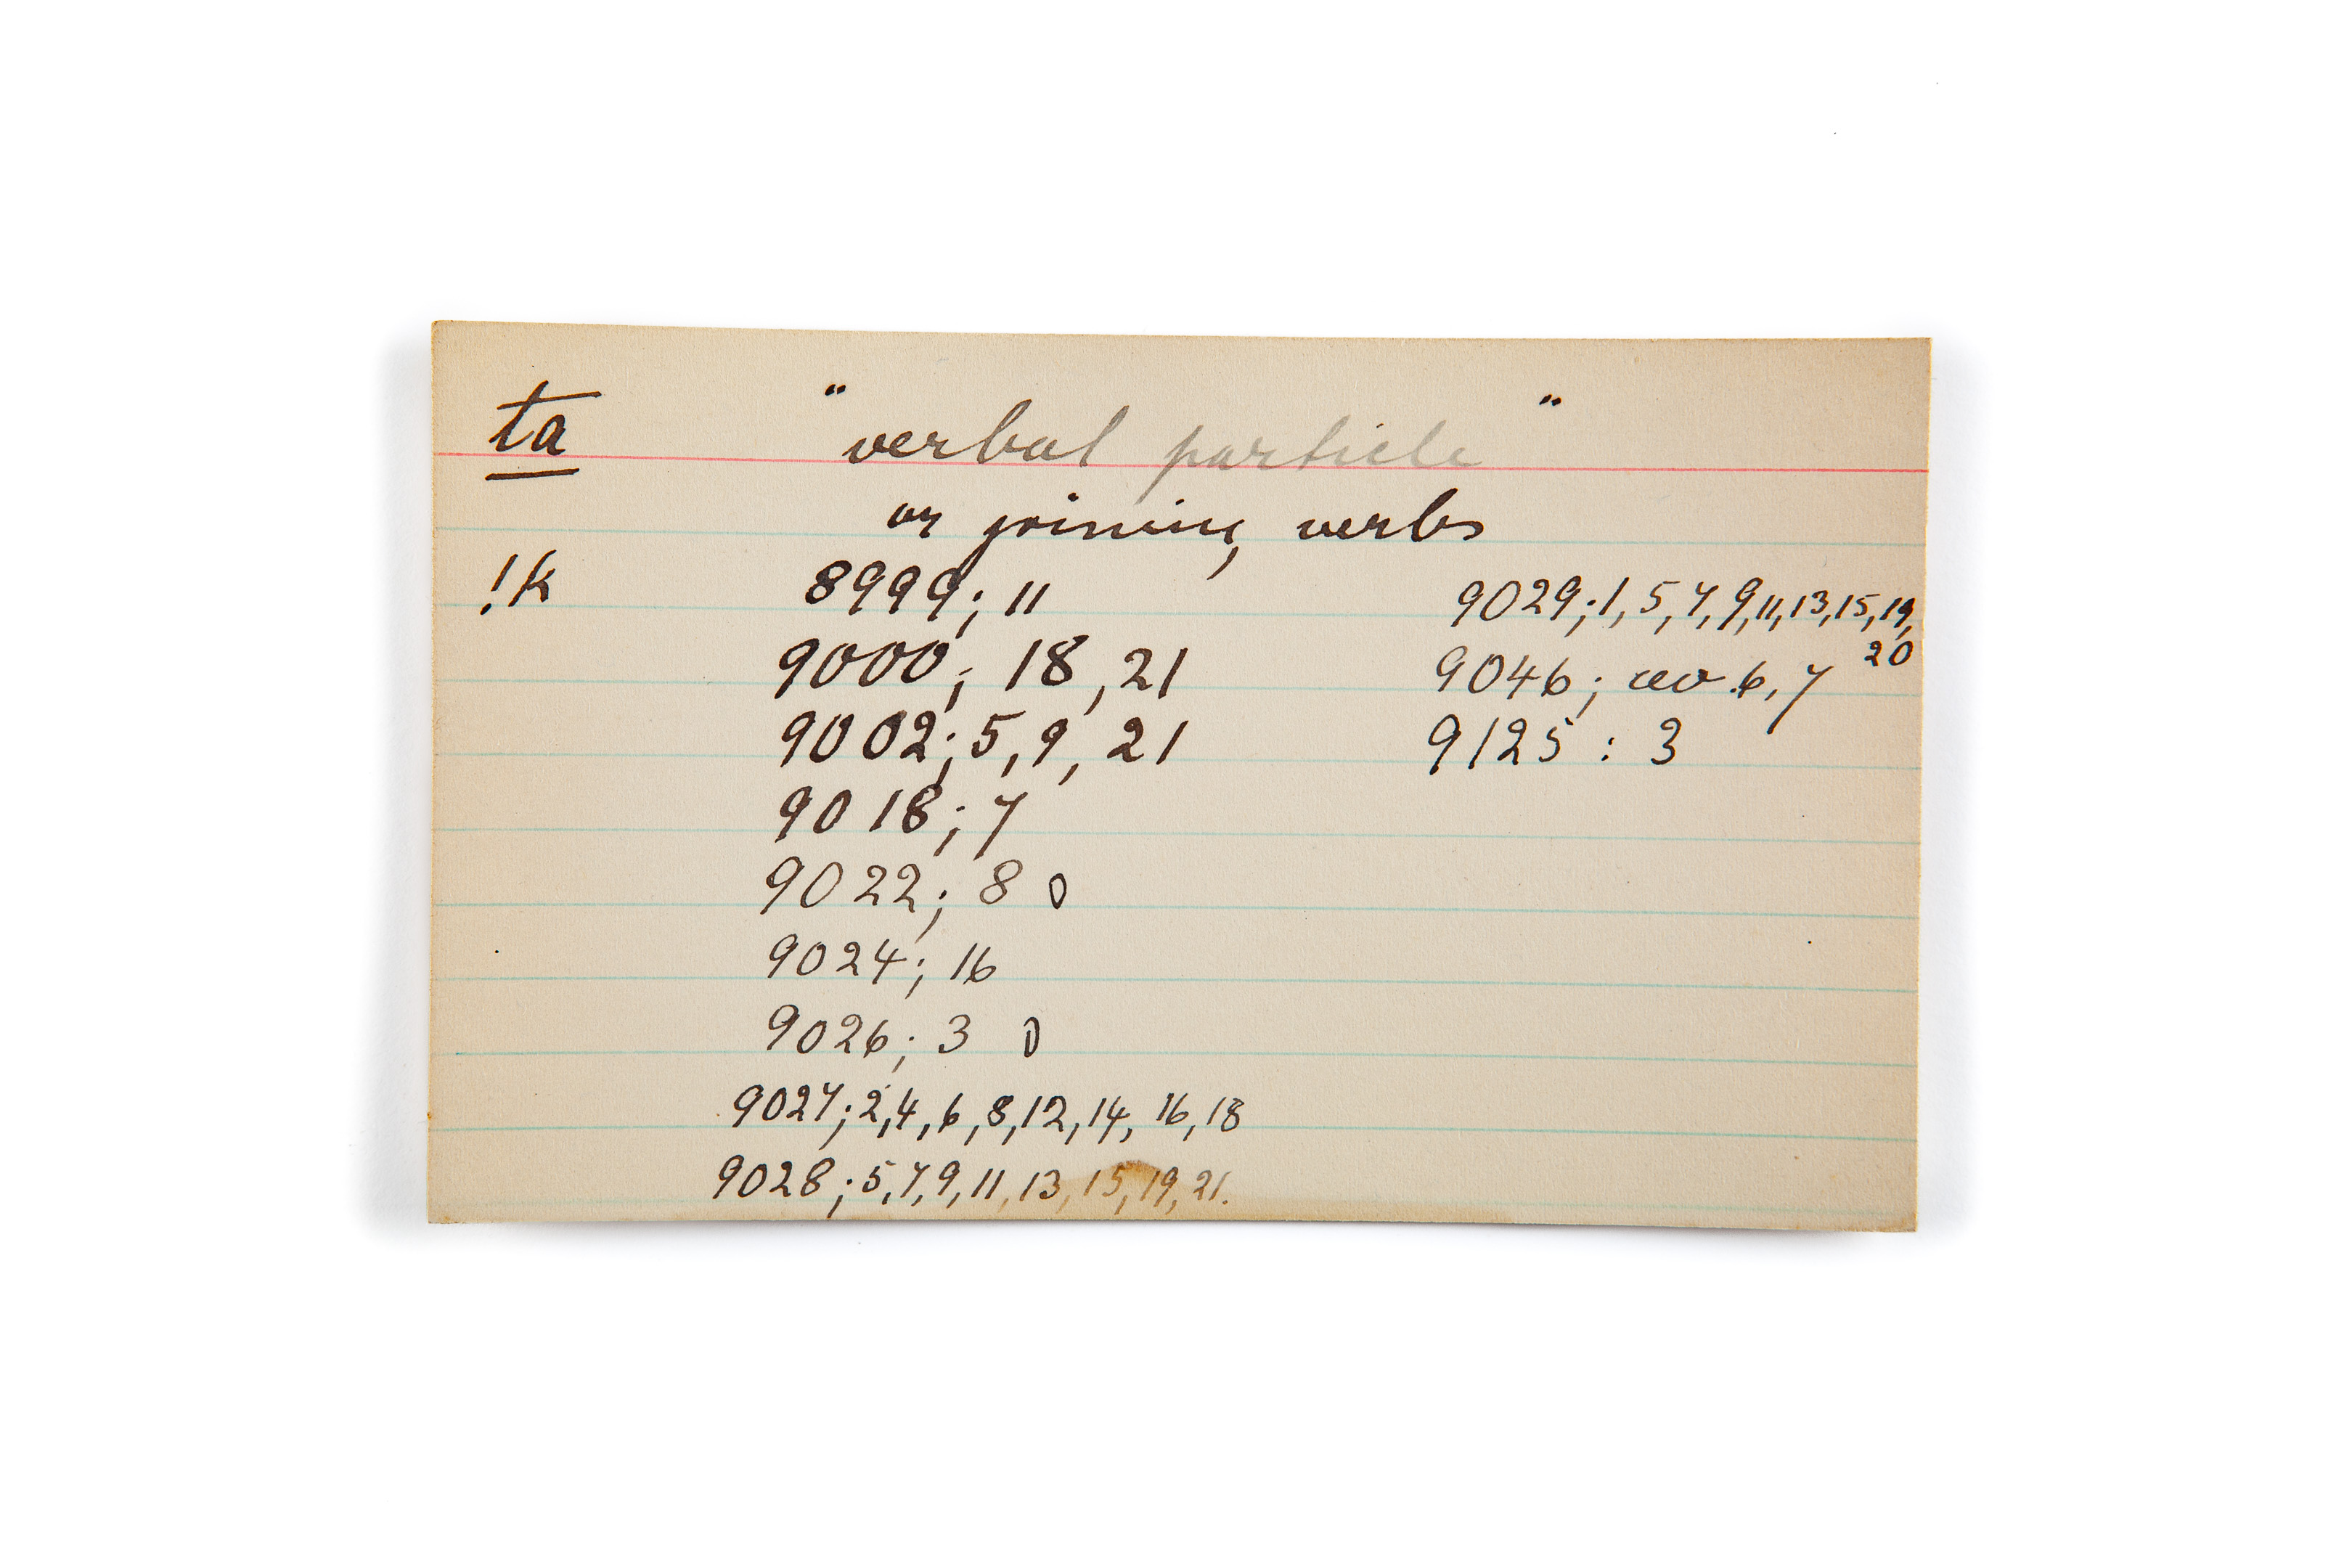 ta " verbal particle "
or joining verbs
!k 8999; 11
9000; 18, 21
9002; 5, 9, 21
9018; 7
9022; 8 0
9024; 16
9026; 3 0
9027; 2, 4, 6, 8, 12, 14, 16, 18
9028; 5, 7, 9, 11, 13, 15, 19, 21.
9029; 1, 5, 7, 9, 11, 13, 15, 19,
20
9046; 6, 7
9125 : 3